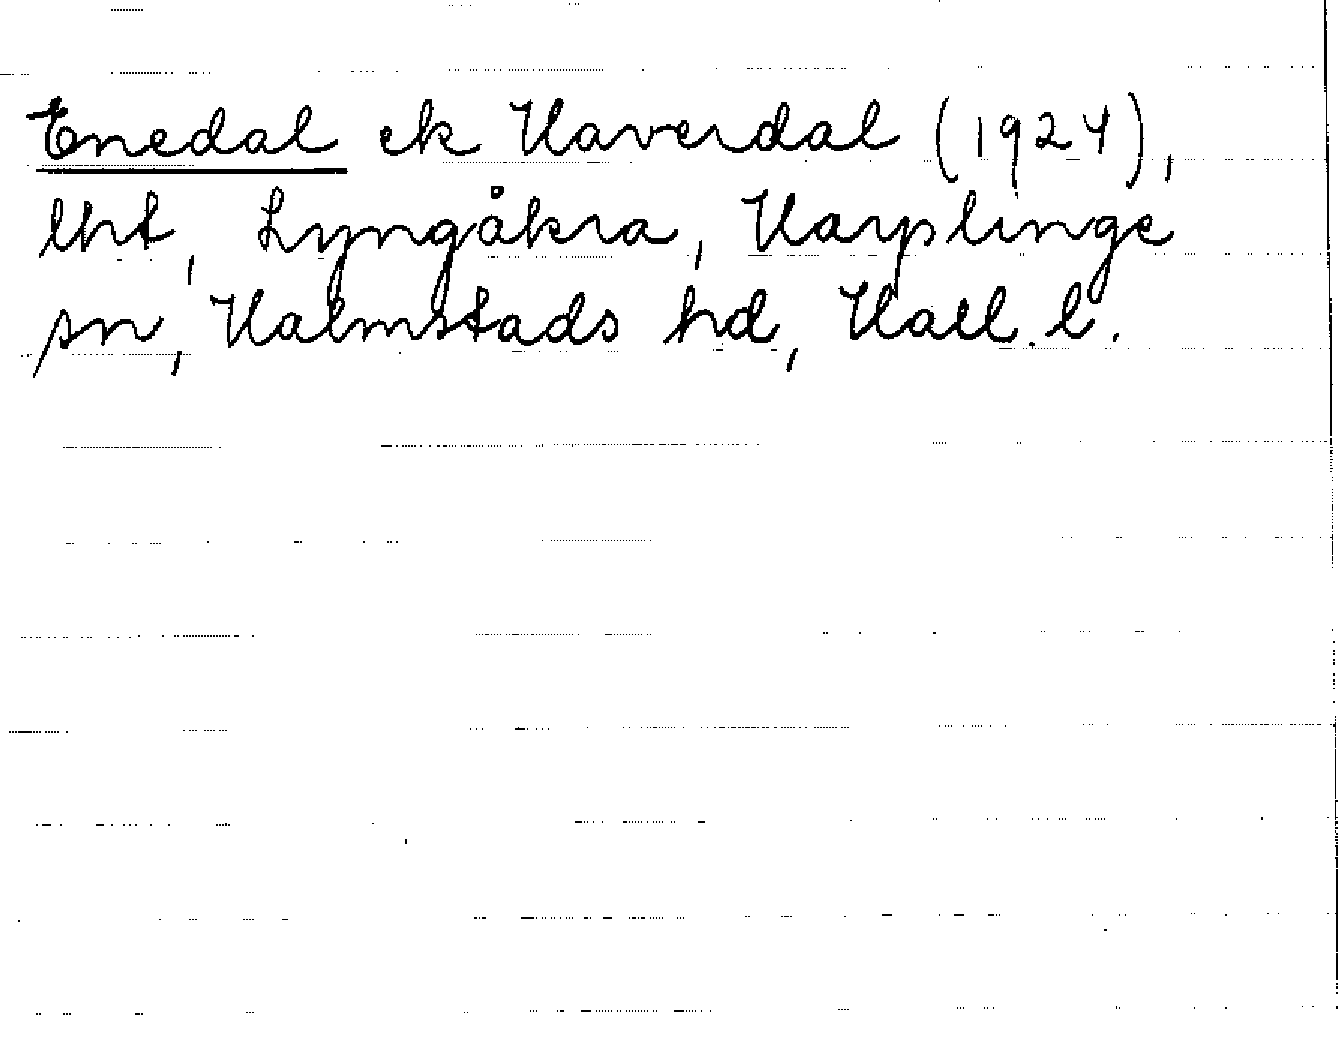 Enedal ek Haverdal (1924),
lht, Lyngåkra, Harplinge
sn, Halmstads hd, Hall. l.